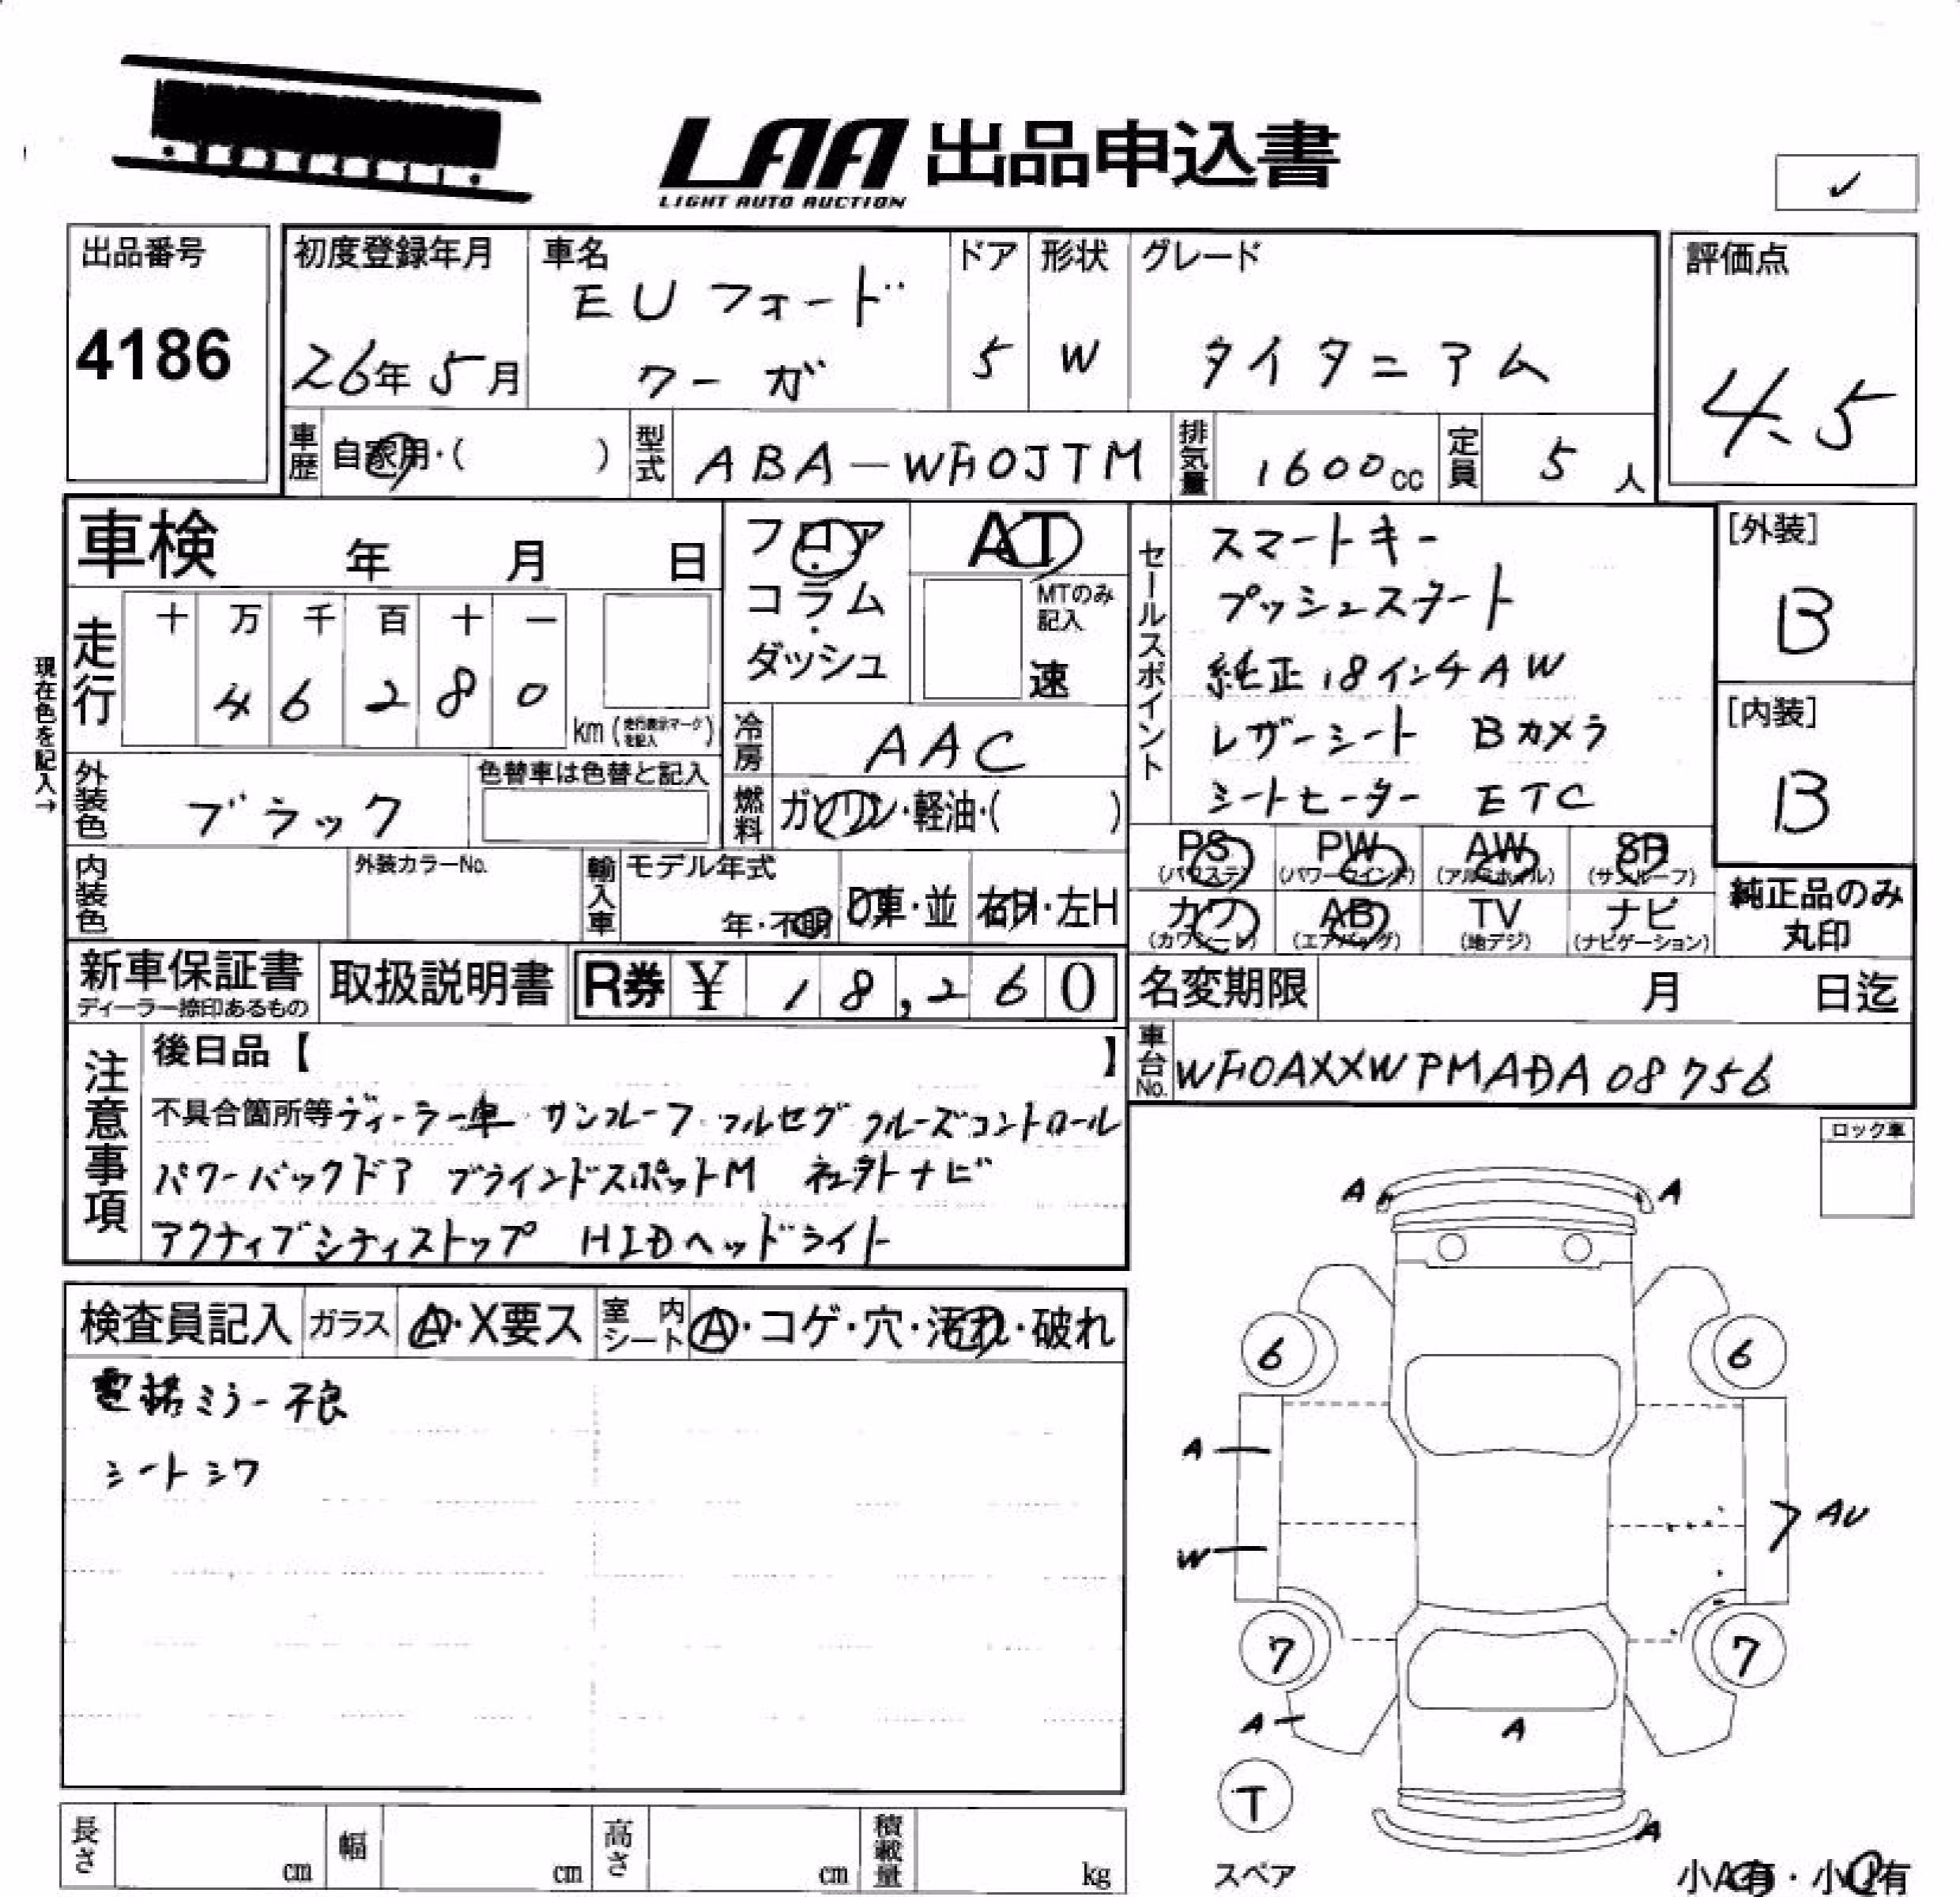 LAA 出品申込書
LIGHT AUTO AUCTION
✓
出品番号
4186
初度登録年月
26年5月
車名
EU フォード
クーガ
ドア
5
形状
W
グレード
タイタニアム
評価点
4.5
車歴 自家用・( )
型式 ABA-WF0JTM
排気量 1600cc
定員 5人
車検 年 月 日
フロア・コラム・ダッシュ
AT
MTのみ記入
速
走行
十 万 千 百 十 一
4 6 2 8 0
km (走行表示マークを記入)
現在色を記入→
冷房 AAC
外装色 ブラック
色替車は色替と記入
燃料 ガソリン・軽油・( )
内装色
外装カラーNo.
輸入車
モデル年式
年・不明
D車・並
右H・左H
セールスポイント
スマートキー
プッシュスタート
純正18インチAW
レザーシート Bカメラ
シートヒーター ETC
[外装]
B
[内装]
B
PS (パワステ)
PW (パワーウインド)
AW (アルミホイル)
SR (サンルーフ)
カワ (カワシート)
AB (エアバッグ)
TV (地デジ)
ナビ (ナビゲーション)
純正品のみ
丸印
新車保証書
ディーラー捺印あるもの
取扱説明書
R券 ¥ 18,260
名変期限 月 日迄
車台No. WF0AXXWPMADA08756
注意事項
後日品【 】
不具合箇所等 ディーラー車 サンルーフ フルセグ クルーズコントロール
パワーバックドア ブラインドスポットM 社外ナビ
アクティブシティストップ HIDヘッドライト
ロック車
検査員記入
ガラス A・X要ス
室内シート A・コゲ・穴・汚れ・破れ
電格ミラー不良
シートシワ
A A
6 6
A
W
AU
7 7
A
A
T
スペア
A
長さ cm
幅 cm
高さ cm
積載量 kg
小A有・小U有